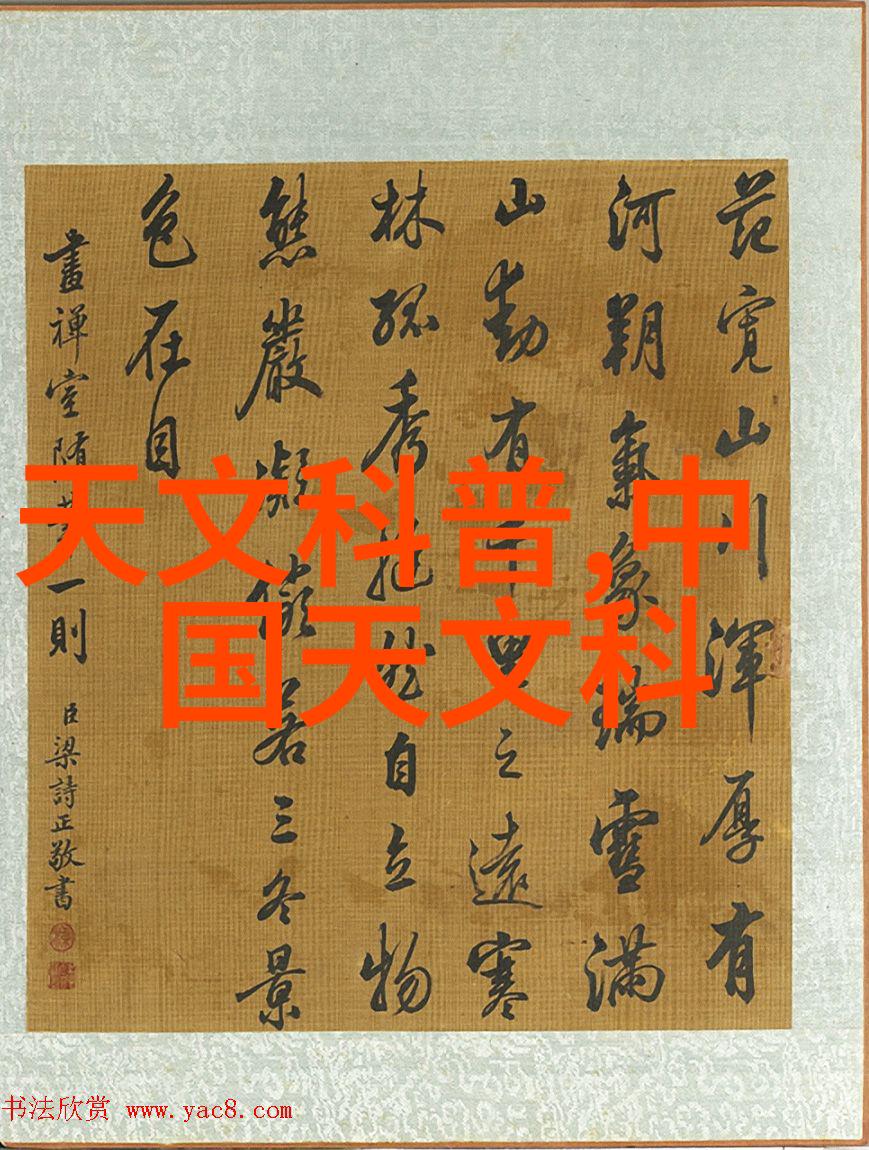 范寬山川渾厚有
河朔氣象瑞雪滿
山動有千里之遠寒
林孤秀挺然自立物
態嚴凝儼若三冬景
色在目
畫禪室隨筆一則
臣梁詩正敬書
天文科普,中
国天文科
书法欣赏 www.yac8.com